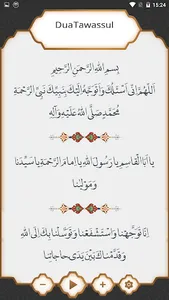 15:24
DuaTawassul
بِسْمِ اللهِ الرَّحْمنِ الرَّحِيمِ
اَللّهُمَّ اِنّى اَسْئَلُكَ وَاَتَوَجَّهُ اِلَيْكَ بِنَبِيِّكَ نَبِىِّ الرَّحْمَةِ
مُحَمَّدٍ صَلَّى اللهُ عَلَيْهِ وَآلِهِ
يا اَبَا الْقاسِمِ يا رَسُولَ اللهِ يا اِمامَ الرَّحْمَةِ يا سَيِّدَنا
وَمَوْلينا
اِنّا تَوَجَّهْنا وَاسْتَشْفَعْنا وَتَوَسَّلْنا بِكَ اِلَى اللهِ
وَقَدَّمْناكَ بَيْنَ يَدَىْ حاجاتِنا